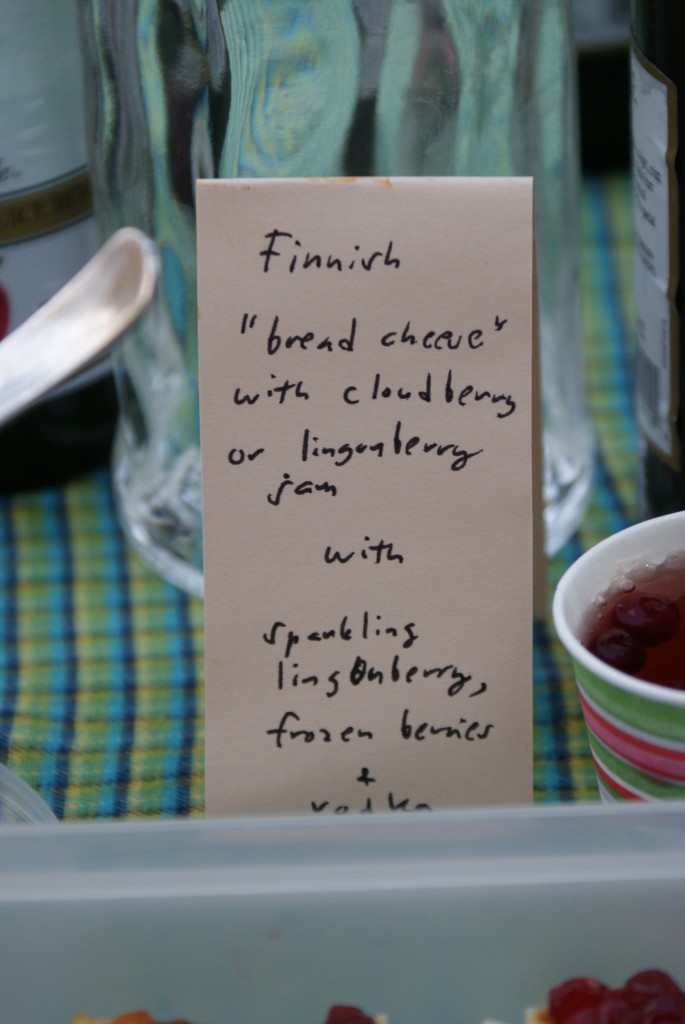 Finnish
"bread cheese"
with cloudberry
or lingonberry
jam
with
sparkling
lingonberry,
frozen berries
+
vodka